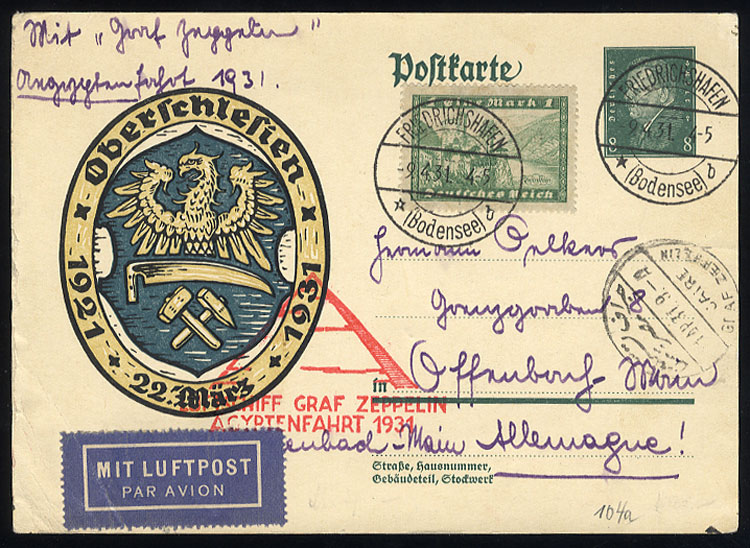 Mit "Graf Zeppelin"
Aegyptenfahrt 1931.
Postkarte
Eine Mark 1
Deutsches Reich
8
FRIEDRICHSHAFEN
-9.4.31. 4-5
(Bodensee)
FRIEDRICHSHAFEN
-9.4.31. 4-5
(Bodensee)
Oberschlesien
1921
1931
22. März
Hermann Oelkers
Grenzgraben 8
in Offenbach-Main
GRAF ZEPPELIN
CAIRE
LUFTSCHIFF GRAF ZEPPELIN
ÄGYPTENFAHRT 1931
Offenbach-Main Allemagne!
Straße, Hausnummer,
Gebäudeteil, Stockwerk
MIT LUFTPOST
PAR AVION
104a